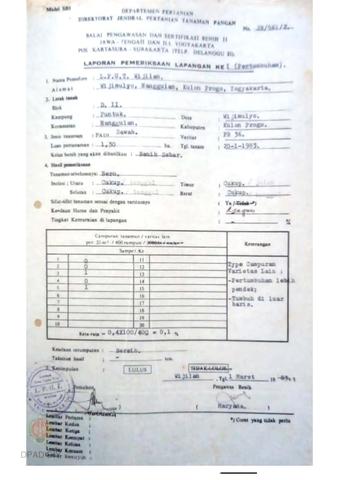 Model SB1
DEPARTEMEN PERTANIAN
DIREKTORAT JENDRAL PERTANIAN TANAMAN PANGAN
No.
BALAI PENGAWASAN DAN SERTIFIKASI BENIH II
JAWA TENGAH DAN D.I. YOGYAKARTA
POS KARTASURA - SURAKARTA (TELP. DELANGGU 8).
LAPORAN PEMERIKSAAN LAPANGAN KE I (Pertumbuhan).
1. Nama Pemohon : L.P.G.T. Wijilan,
Alamat : Wijimulyo, Nanggulan, Kulon Progo, Yogyakarta.
2. Letak tanah
Blok : D. II.
Kampung : Puntuk. Desa : Wijimulyo.
Kecamatan : Nanggulan. Kabupaten : Kulon Progo.
3. Jenis tanaman : PADI Sawah. Varitas : PB 36.
Luas pertanaman : 1,50 ha. Tgl. tanam : 20-1-1983.
Kelas benih yang akan dihasilkan : Benih Sebar.
4. Hasil pemeriksaan
Tanaman sebelumnya: Bero.
Isolasi : Utara : Cukup. Timur : Cukup.
Selatan : Cukup. Barat : Cukup.
Sifat-sifat tanaman sesuai dengan varitasnya : ( Ya /
Keadaan Hama dan Penyakit :
Tingkat Kerusakan di lapangan : - %
Campuran tanaman / varitas lain Keterangan
Sampel Ke
1 0 11
2 0 12
3 1 13
4 0 14
5 1 15
6 16
7 17
8 18
9 19
10 20
Type Campuran
Varietas Lain ;
- Pertumbuhan lebih
pendek;
- Tumbuh di luar
baris.
Rata-rata = 0,4X100/400 = 0,1 %
Keadaan rerumputan : Bersih.
Taksiran hasil : -
5. Kesimpulan : LULUS TIDAK LULUS
Wijilan, Tgl 1 Maret 19 83.
Pemohon Pengawas Benih
( Haryana. )
*) Coret yang tidak perlu
Lembar Pertama :
Lembar Kedua :
Lembar Ketiga :
Lembar Keempat :
Lembar Kelima :
Lembar Keenam :